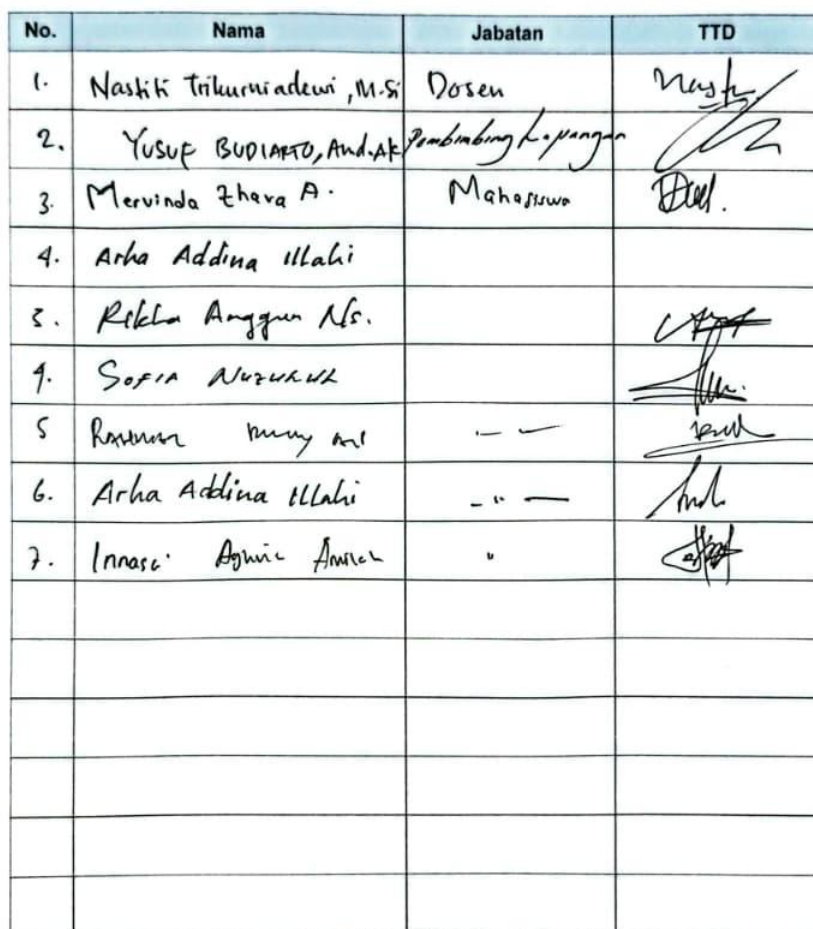 No. Nama Jabatan TTD
1. Nastiti Trikurniadewi, M.Si Dosen
2. YUSUF BUDIARTO, Amd.Ak Pembimbing Lapangan
3. Mervinda Zhava A. Mahasiswa
4. Arha Addina Illahi
5. Rikha Anggun Ns.
4. SOFIA NUZULUL
5
6. Arha Addina Illahi - " -
7. "